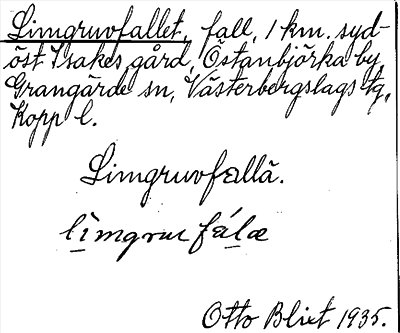 Limgruvfallet, fall, 1 km. syd-
öst Isakes gård, Östanbjörka by,
Grangärde sn, Västerbergslags tg,
Kopp. l.
Limgruvfallä.
Otto Blixt 1935.